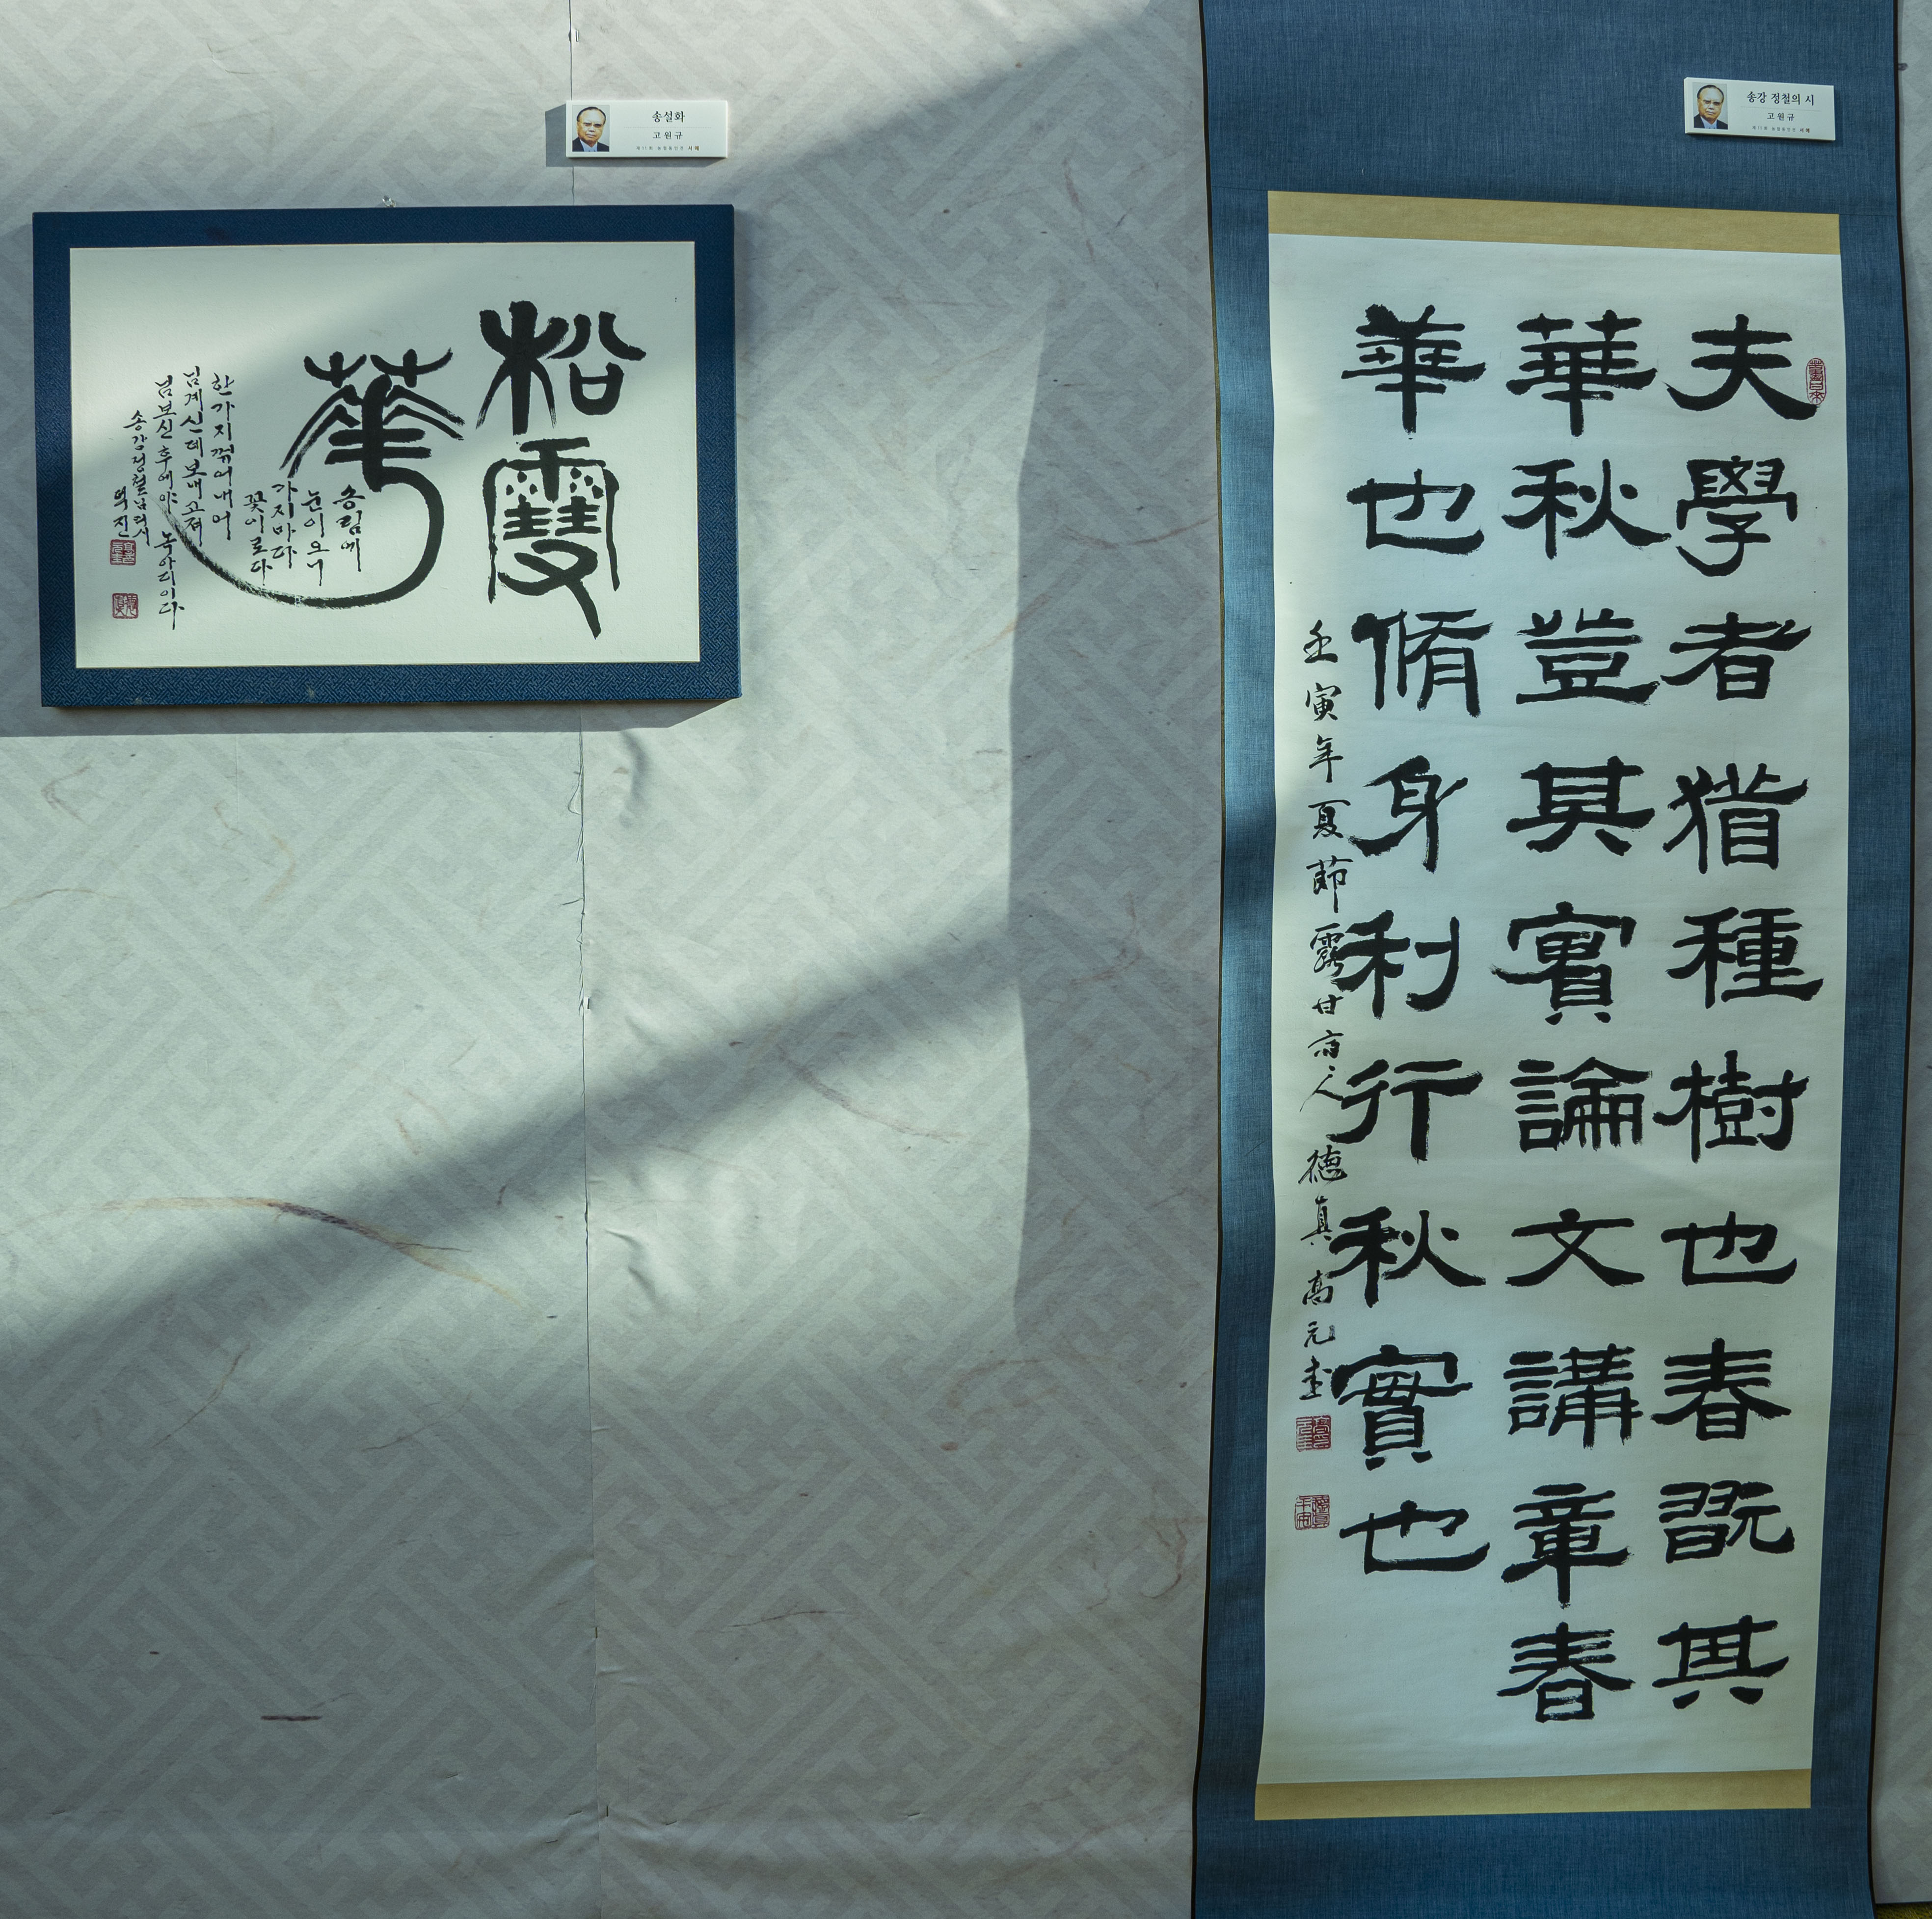 송설화
고원규
송강 정철의 시
고원규
松雪
華
송림에
눈이오니
가지마다
꽃이로다
한가지꺾어내어
님계신데보내고져
님보신후에야 녹아디이다
송강정철님의시
덕진
夫學者猶種樹也春翫其
華秋登其實論文講章春
華也脩身利行秋實也
壬寅年夏節 甘 人 德真 高元圭